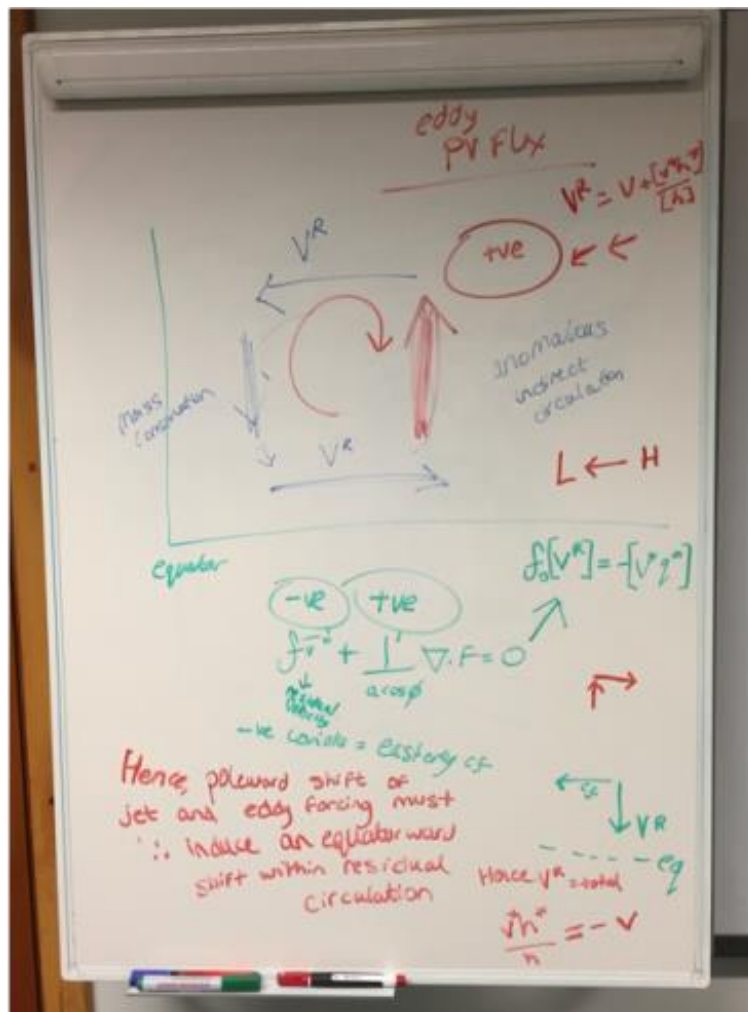 eddy
PV Flux
V^R = V + [v*h*]/[h]
V^R
+ve
anomalous
indirect
circulation
mass
conservation
V^R
L ← H
equator
f₀[V^R] = -[v*q*]
-ve +ve
f v̄* + 1/(a cos φ) ∇.F = 0
residual
-ve coriolis = easterly cf
Hence, poleward shift of
jet and eddy forcing must
∴ induce an equatorward
shift within residual
circulation
cf
V^R
eq
Hence V^R = total
v*h*/h = -v